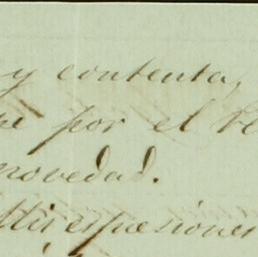 y contenta,
por el re
novedad.
espresiones